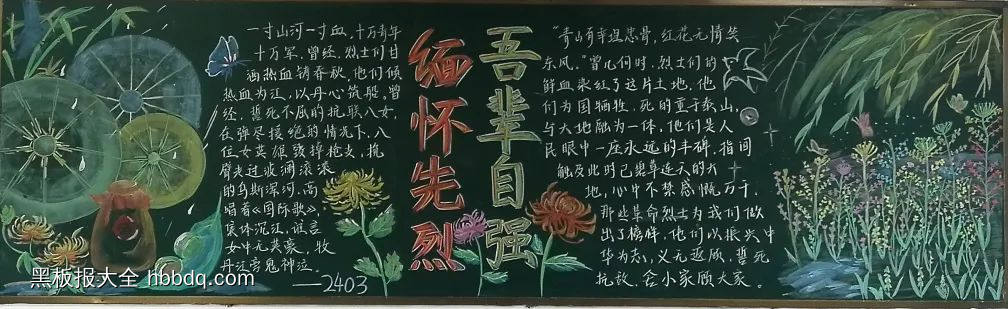 一寸山河一寸血,十万青年
十万军。曾经,烈士们甘
洒热血铸春秋,他们倾
热血为江,以丹心筑船,曾
经,誓死不屈的抗联八女,
在弹尽援绝的情况下,八
位女英雄毁掉枪支,挽
臂走过波澜滚滚
的乌斯浑河,高
唱着《国际歌》,
集体沉江,谁言
女中无英豪,牧
丹江旁鬼神泣。
——2403
缅怀先烈
吾辈自强
“青山有幸埋忠骨,红花无情笑
东风。”曾几何时,烈士们的
鲜血染红了这片土地,他
们为国牺牲,死的重于泰山,
与大地融为一体,他们是人
民眼中一座永远的丰碑,指间
触及此时已碧草连天的大
地,心中不禁感慨万千,
那些革命烈士为我们做
出了榜样,他们以振兴中
华为志,义无返顾,誓死
抗敌,舍小家顾大家。
黑板报大全 hbbdq.com